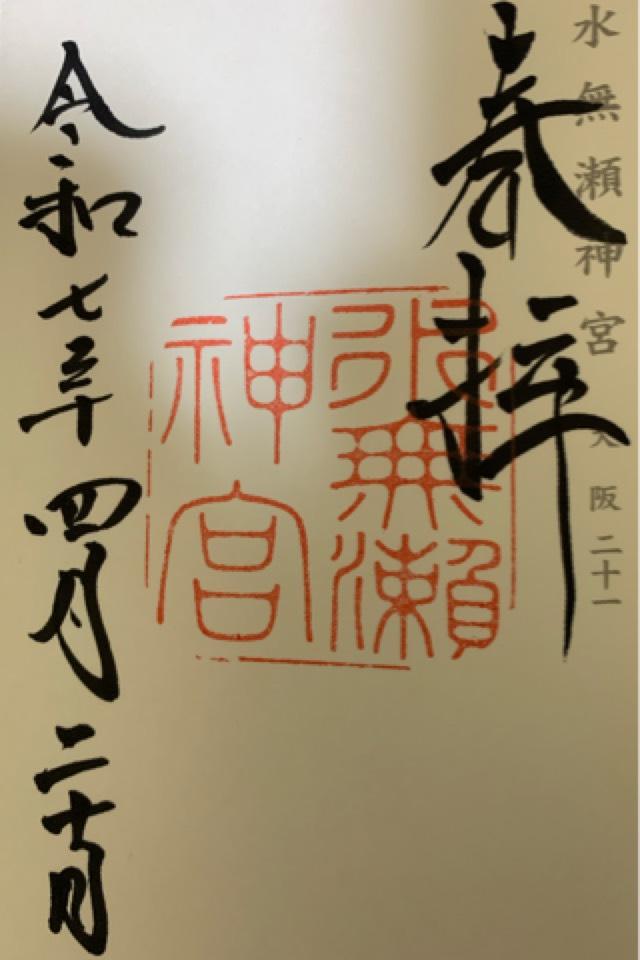 水無瀬神宮 大阪二十一
奉拝
無瀬
神宮
令和七年四月二十日